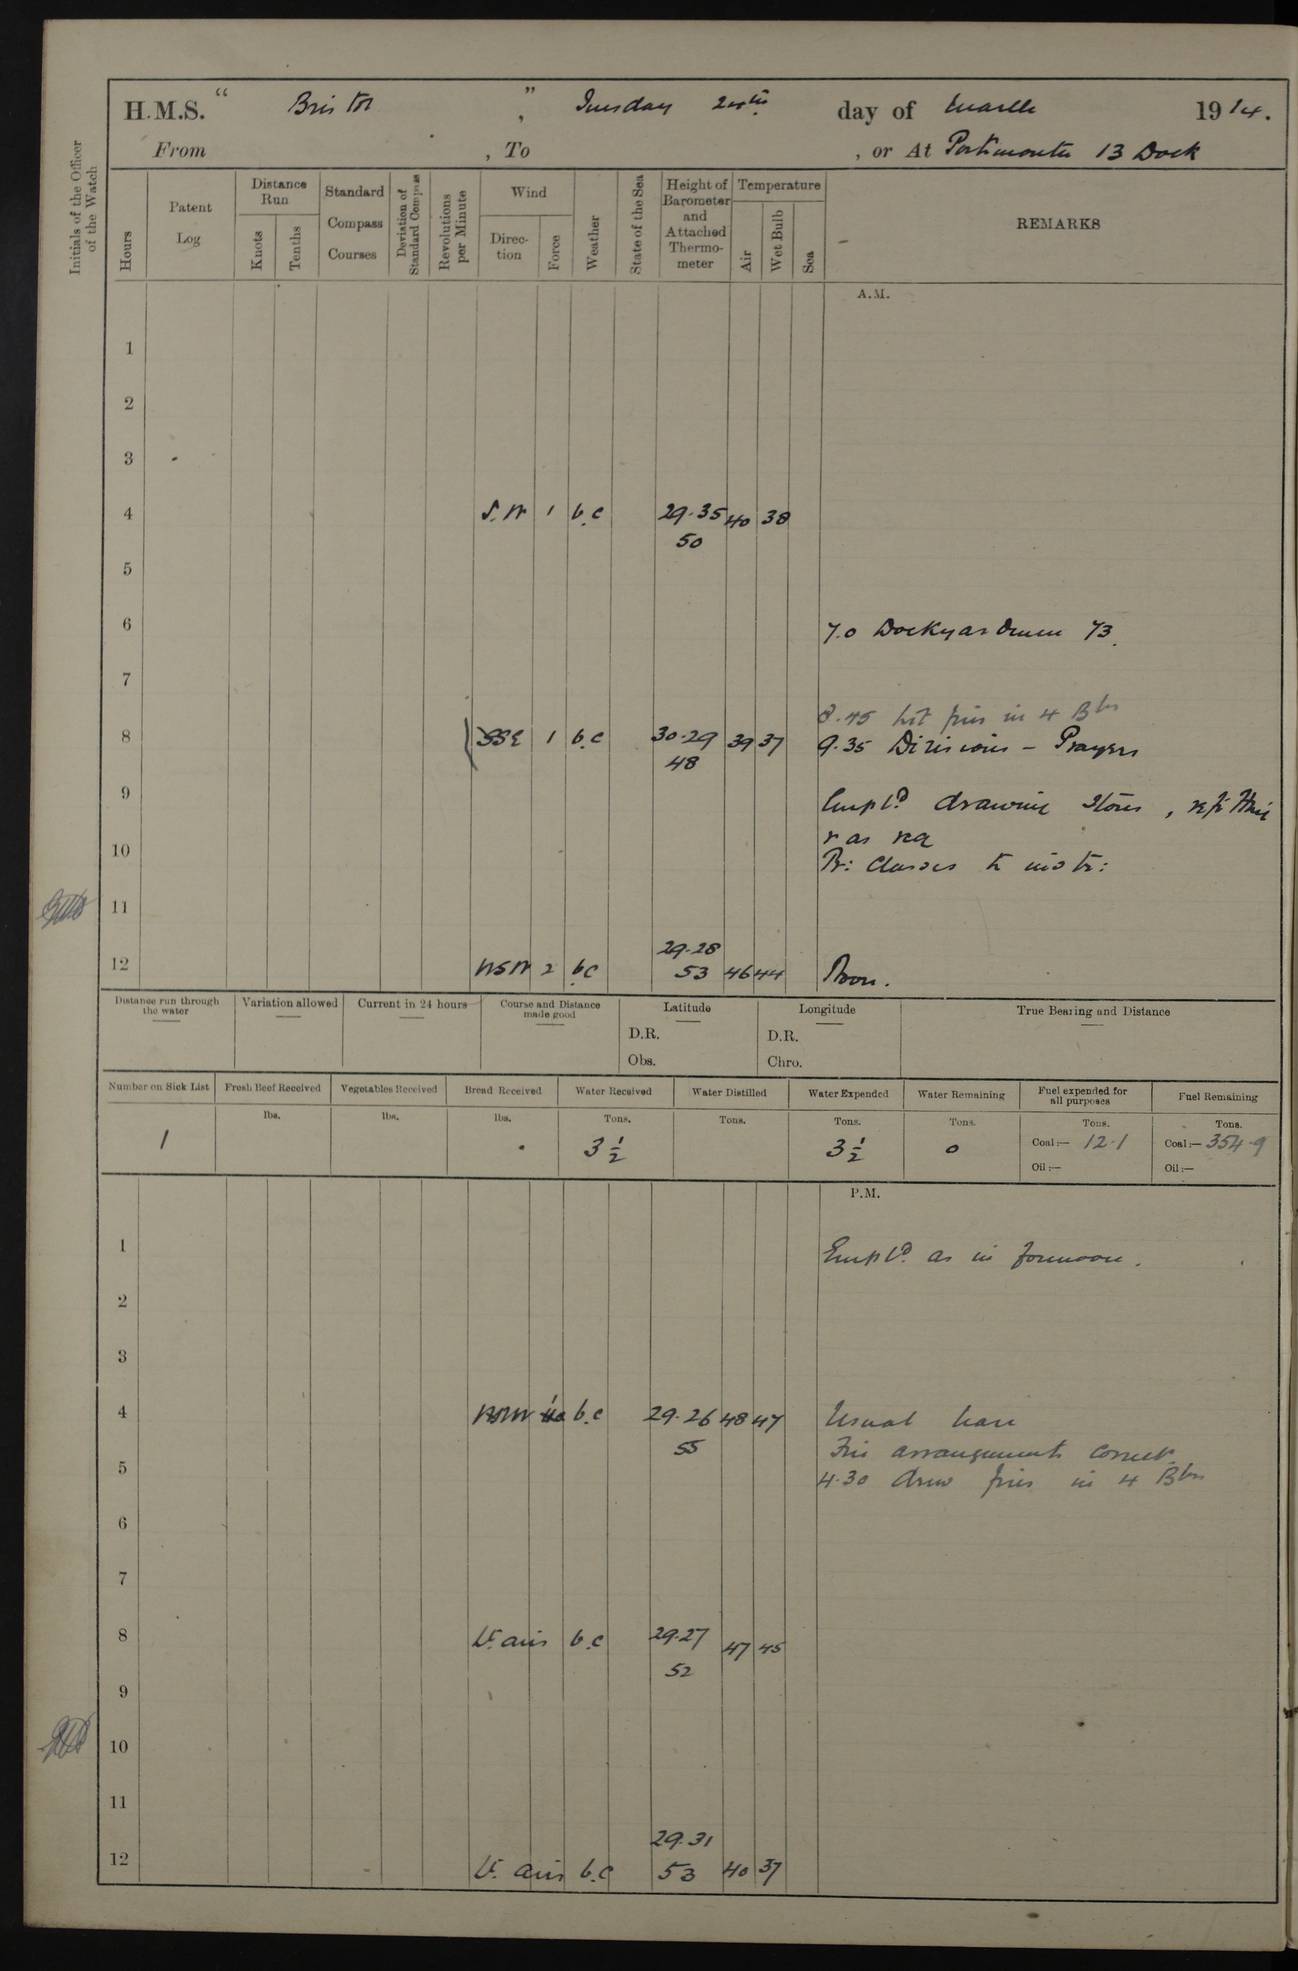 H.M.S. " Bristol ", Tuesday 24th day of March 1914.
From , To , or At Portsmouth 13 Dock
Initials of the Officer of the Watch
Hours
Patent Log
Distance Run
Knots
Tenths
Standard Compass Courses
Deviation of Standard Compass
Revolutions per Minute
Wind
Direction
Force
Weather
State of the Sea
Height of Barometer and Attached Thermometer
Temperature
Air
Wet Bulb
Sea
REMARKS
A.M.
1
2
3
4 S.W 1 b.c 29.35 40 38
50
5
6 7.0 Dockyard men 73.
7
8.45 lit fires in 4 Blrs
8 SSE 1 b.c 30.29 39 37 9.35 Divisions - Prayers
48
9 Empld drawing stores, refitting
& as req
10 Pr: Classes to instr:
11
29.28
12 WSW 2 b.c 53 46 44 Noon.
Distance run through the water
Variation allowed
Current in 24 hours
Course and Distance made good
Latitude
D.R.
Obs.
Longitude
D.R.
Chro.
True Bearing and Distance
Number on Sick List
1
Fresh Beef Received
lbs.
Vegetables Received
lbs.
Bread Received
lbs.
Water Received
Tons.
3 1/2
Water Distilled
Tons.
Water Expended
Tons.
3 1/2
Water Remaining
Tons.
0
Fuel expended for all purposes
Tons.
Coal:— 12.1
Oil:—
Fuel Remaining
Tons.
Coal:— 354.9
Oil:—
P.M.
1 Empld as in forenoon.
2
3
4 1 b.c 29.26 48 47 Usual leave
55 Fire arrangements correct.
5 4.30 drew fires in 4 Blrs
6
7
8 Lt. airs b.c 29.27 47 45
52
9
10
11
29.31
12 Lt. airs b.c 53 40 37